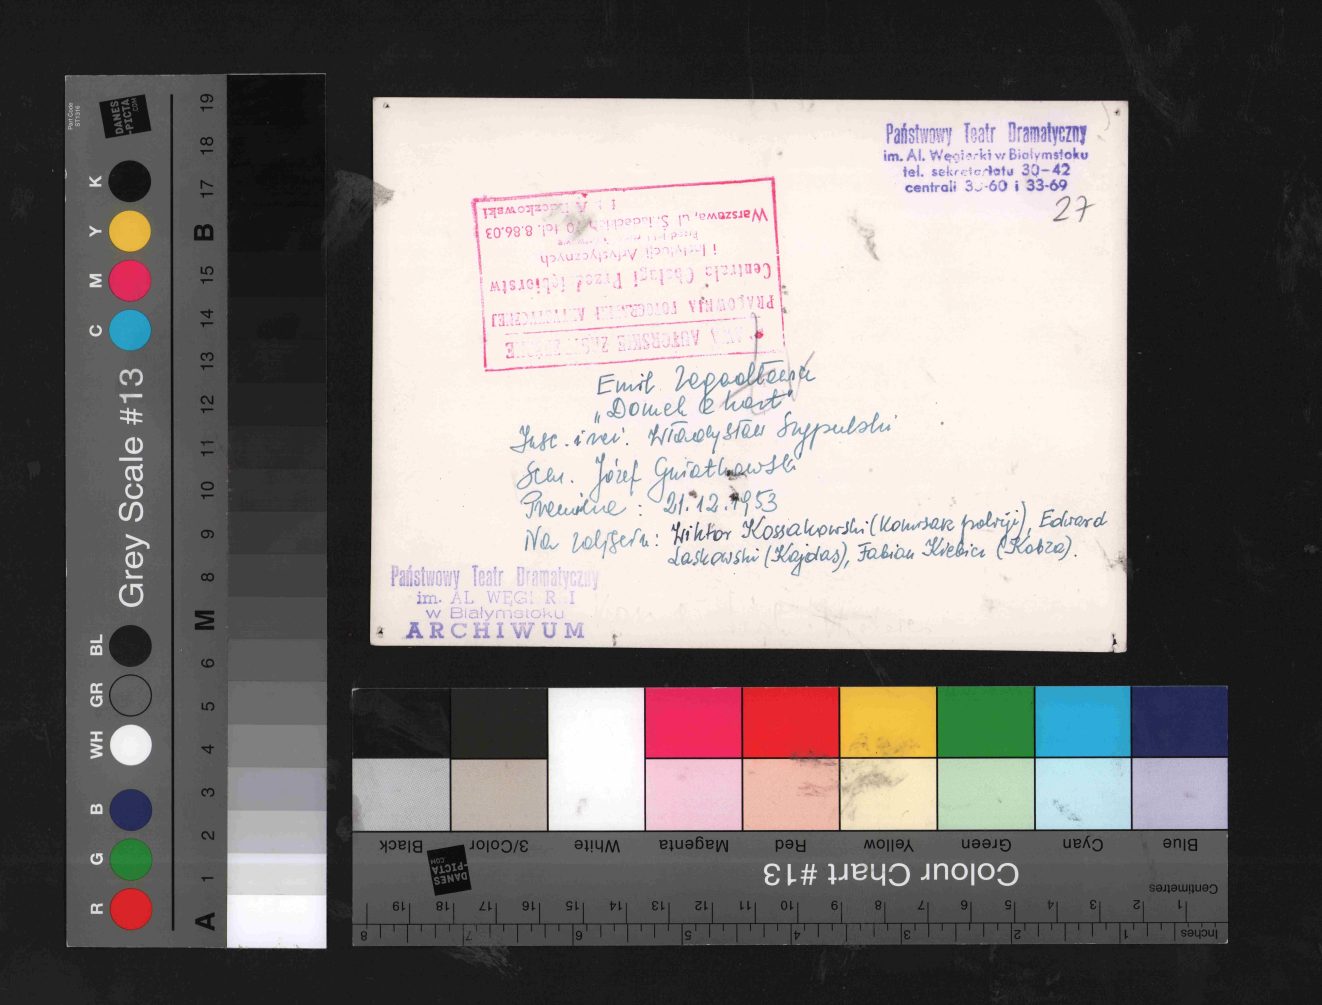 Państwowy Teatr Dramatyczny
im. Al. Węgierki w Białymstoku
tel. sekretariatu 30-42
centrali 33-60 i 33-69
27
PRAWA AUTORSKIE ZASTRZEŻONE
PRACOWNIA FOTOGRAFII ARTYSTYCZNEJ
Centrala Obsługi Przedsiębiorstw
i Instytucji Artystycznych
Warszawa, ul. Śniadeckich tel. 8.86.03
Emil Zegadłowicz
"Domek z kart"
Insc. i reż. Władysław
Scen. Józef Gniatkowski
Premiera: 21.12.1953
Na zdjęciu: Wiktor Kossakowski (Komisarz policji), Edward
Laskowski (Kajdas), Fabian Kiebicz (Kobza).
Państwowy Teatr Dramatyczny
im. AL WĘGI R I
w Białymstoku
ARCHIWUM
Part Code
ST1316
DANES
-PICTA
.COM
Grey Scale #13
K
Y
M
C
BL
GR
WH
B
G
R
19
18
17
B
15
14
13
12
11
10
9
8
M
6
5
4
3
2
1
A
Black
3/Color
White
Magenta
Red
Yellow
Green
Cyan
Blue
DANES
-PICTA
.COM
Colour Chart #13
Centimetres
19 18 17 16 15 14 13 12 11 10 9 8 7 6 5 4 3 2 1
8 7 6 5 4 3 2 1 Inches